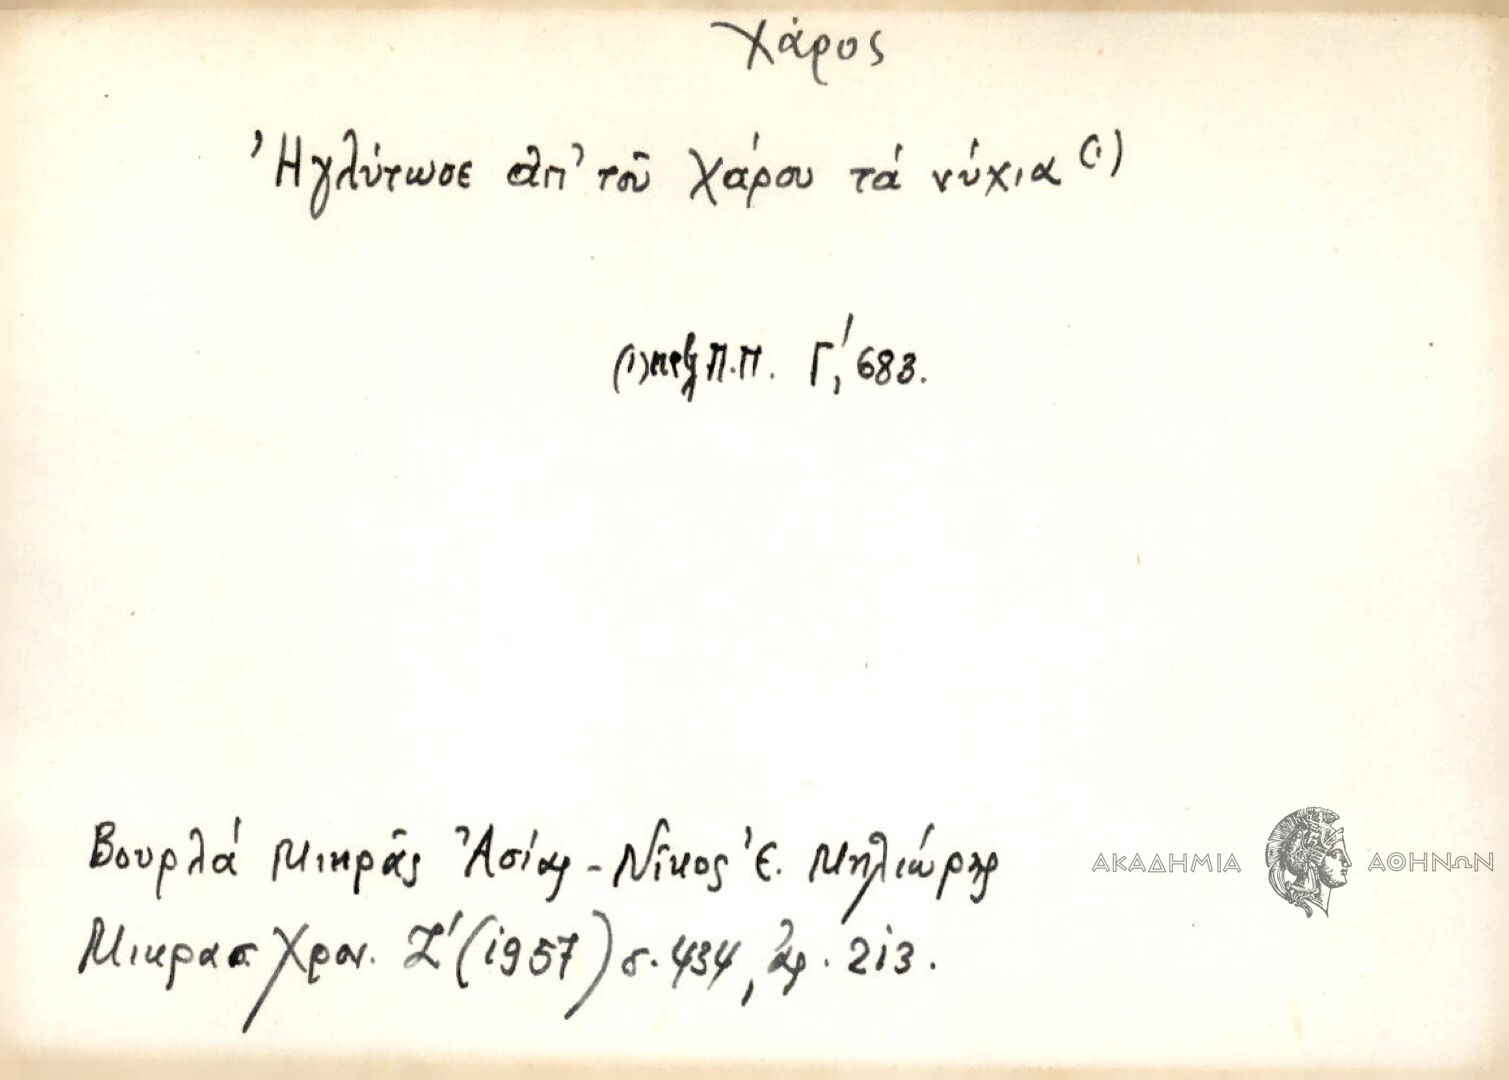 Χάρος
Ἠγλύτωσε ἀπ' τοῦ Χάρου τά νύχια (1)
(1) Π.Π. Γ', 683.
Βουρλά Μικρᾶς Ἀσίας - Νῖκος Ἐ. Μηλιώρης
Μικρασ Χρον. Ζ' (1957) σ. 434, ἀρ. 213.
ΑΚΑΔΗΜΙΑ ΑΘΗΝΩΝ